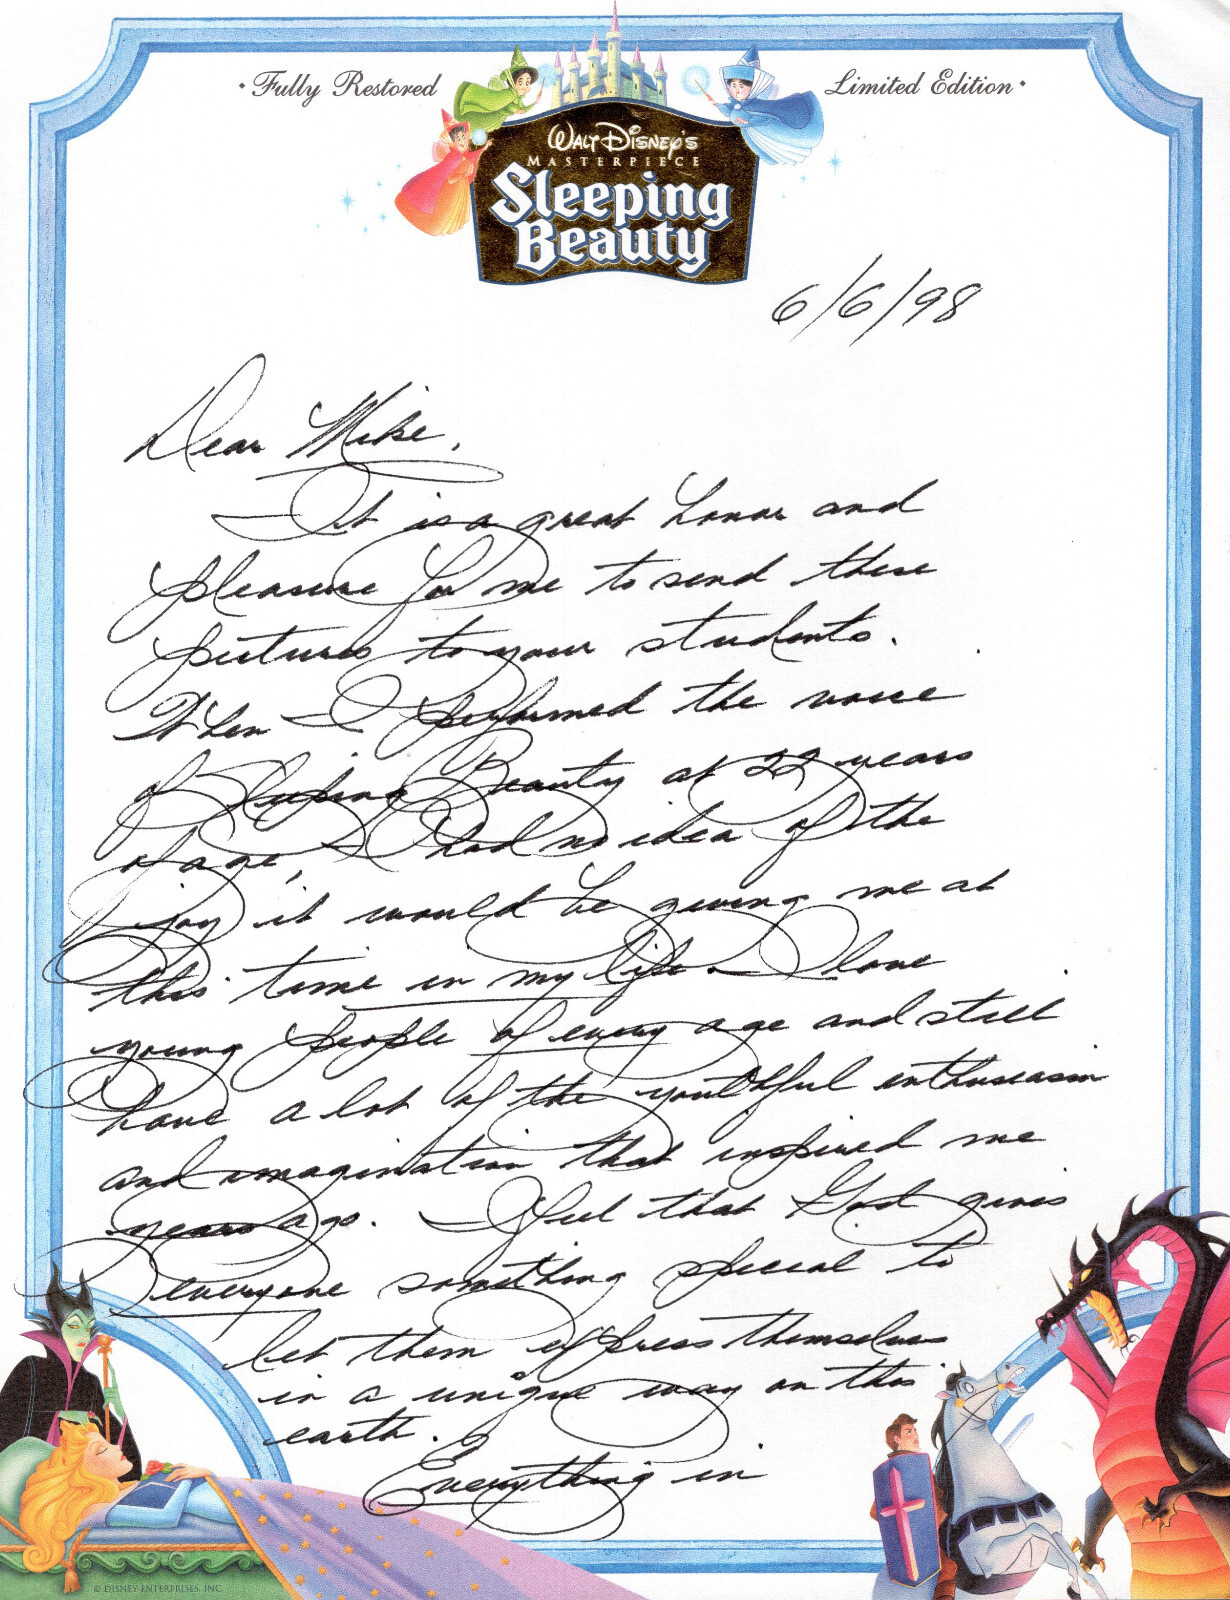 · Fully Restored
Limited Edition ·
WALT DISNEY'S
MASTERPIECE
Sleeping
Beauty
6/6/98
Dear Mike,
It is a great honor and
pleasure for me to send these
pictures to your students.
When I performed the voice
of Sleeping Beauty at 22 years
of age, I had no idea of the
joy it would be giving me at
this time in my life. I love
young people of every age and still
have a lot of the youthful enthuseasm
and imagination that inspired me
years ago. I feel that God gives
everyone something special to
let them express themselves
in a unique way on this
earth.
Everything in
© DISNEY ENTERPRISES, INC.